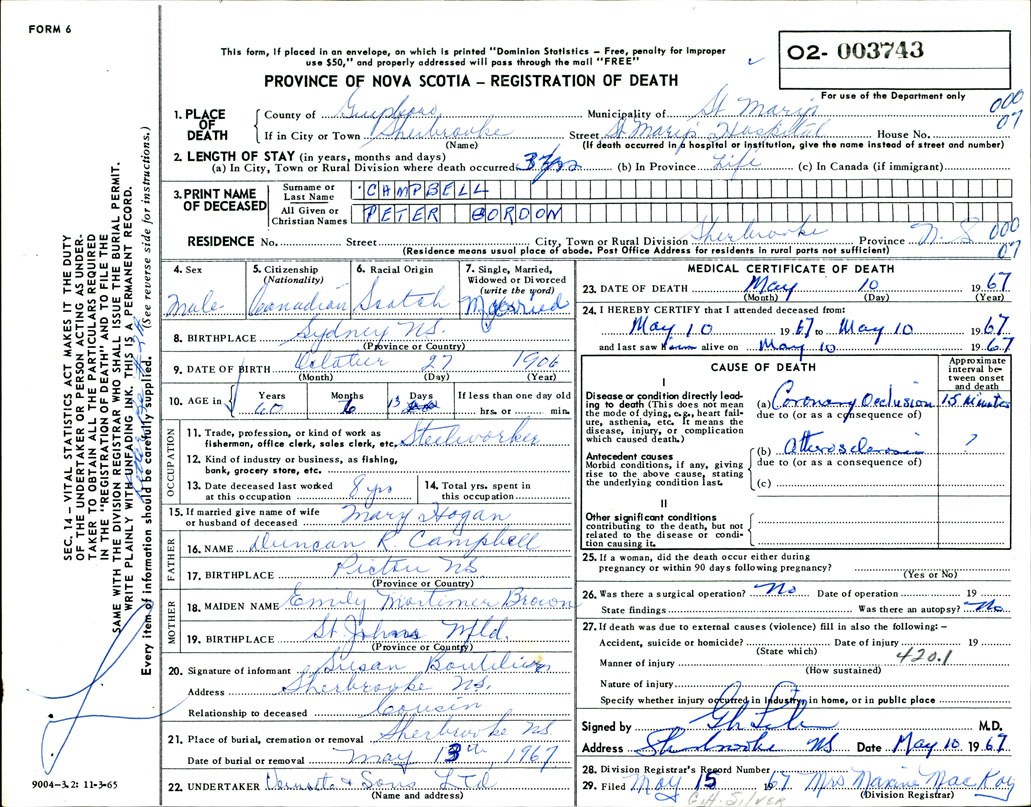 FORM 6
This form, if placed in an envelope, on which is printed "Dominion Statistics – Free, penalty for improper
use $50," and properly addressed will pass through the mail "FREE"
O2- 003743
PROVINCE OF NOVA SCOTIA – REGISTRATION OF DEATH
For use of the Department only
1. PLACE OF DEATH
County of Guysboro Municipality of St Marys 000
If in City or Town Sherbrooke Street St Marys Hospital House No. 07
(Name) (If death occurred in a hospital or institution, give the name instead of street and number)
2. LENGTH OF STAY (in years, months and days)
(a) In City, Town or Rural Division where death occurred 3 yrs (b) In Province Life (c) In Canada (if immigrant)
3. PRINT NAME OF DECEASED
Surname or Last Name CAMPBELL
All Given or Christian Names PETER GORDON
RESIDENCE No. Street City, Town or Rural Division Sherbrooke Province N.S 000
(Residence means usual place of abode. Post Office Address for residents in rural parts not sufficient) 07
4. Sex Male
5. Citizenship (Nationality) Canadian
6. Racial Origin Scotch
7. Single, Married, Widowed or Divorced (write the word) Married
8. BIRTHPLACE Sydney NS.
(Province or Country)
9. DATE OF BIRTH October 27 1906
(Month) (Day) (Year)
10. AGE in Years Months Days If less than one day old
60 6 13 hrs. or min.
OCCUPATION
11. Trade, profession, or kind of work as
fisherman, office clerk, sales clerk, etc. Steelworker
12. Kind of industry or business, as fishing,
bank, grocery store, etc.
13. Date deceased last worked at this occupation 8 yrs
14. Total yrs. spent in this occupation
15. If married give name of wife or husband of deceased Mary Hogan
FATHER
16. NAME Duncan R. Campbell
17. BIRTHPLACE Pictou NS
(Province or Country)
MOTHER
18. MAIDEN NAME Emily Mortimer Brown
19. BIRTHPLACE St. Johns Nfld.
(Province or Country)
20. Signature of informant Susan Boutilier
Address Sherbrooke NS.
Relationship to deceased Cousin
21. Place of burial, cremation or removal Sherbrooke NS
Date of burial or removal May 13th, 1967
22. UNDERTAKER & Sons LTD
(Name and address)
MEDICAL CERTIFICATE OF DEATH
23. DATE OF DEATH May 10 1967
(Month) (Day) (Year)
24. I HEREBY CERTIFY that I attended deceased from:
May 10 1967 to May 10 1967
and last saw him alive on May 10 1967
CAUSE OF DEATH
Approximate interval between onset and death
I
Disease or condition directly leading to death (This does not mean the mode of dying, e.g., heart failure, asthenia, etc. It means the disease, injury, or complication which caused death.)
(a) Coronary Occlusion 15 Minutes
due to (or as a consequence of)
Antecedent causes
Morbid conditions, if any, giving rise to the above cause, stating the underlying condition last.
(b) Atherosclerosis ?
due to (or as a consequence of)
(c)
II
Other significant conditions
contributing to the death, but not related to the disease or condition causing it.
25. If a woman, did the death occur either during
pregnancy or within 90 days following pregnancy?
(Yes or No)
26. Was there a surgical operation? No Date of operation 19
State findings Was there an autopsy? No
27. If death was due to external causes (violence) fill in also the following: –
Accident, suicide or homicide? Date of injury 19
(State which) 420.1
Manner of injury
(How sustained)
Nature of injury
Specify whether injury occurred in industry, in home, or in public place
Signed by M.D.
Address Sherbrooke NS Date May 10 1967
28. Division Registrar's Record Number
29. Filed May 15 1967 Mrs Maxine MacKay
(Division Registrar)
G.H. SILVER
9004–3.2: 11-3-65
SEC. 14 – VITAL STATISTICS ACT MAKES IT THE DUTY
OF THE UNDERTAKER OR PERSON ACTING AS UNDER-
TAKER TO OBTAIN ALL THE PARTICULARS REQUIRED
IN THE "REGISTRATION OF DEATH" AND TO FILE THE
SAME WITH THE DIVISION REGISTRAR WHO SHALL ISSUE THE BURIAL PERMIT.
WRITE PLAINLY WITH UNFADING INK. THIS IS A PERMANENT RECORD.
Every item of information should be carefully supplied. (See reverse side for instructions.)